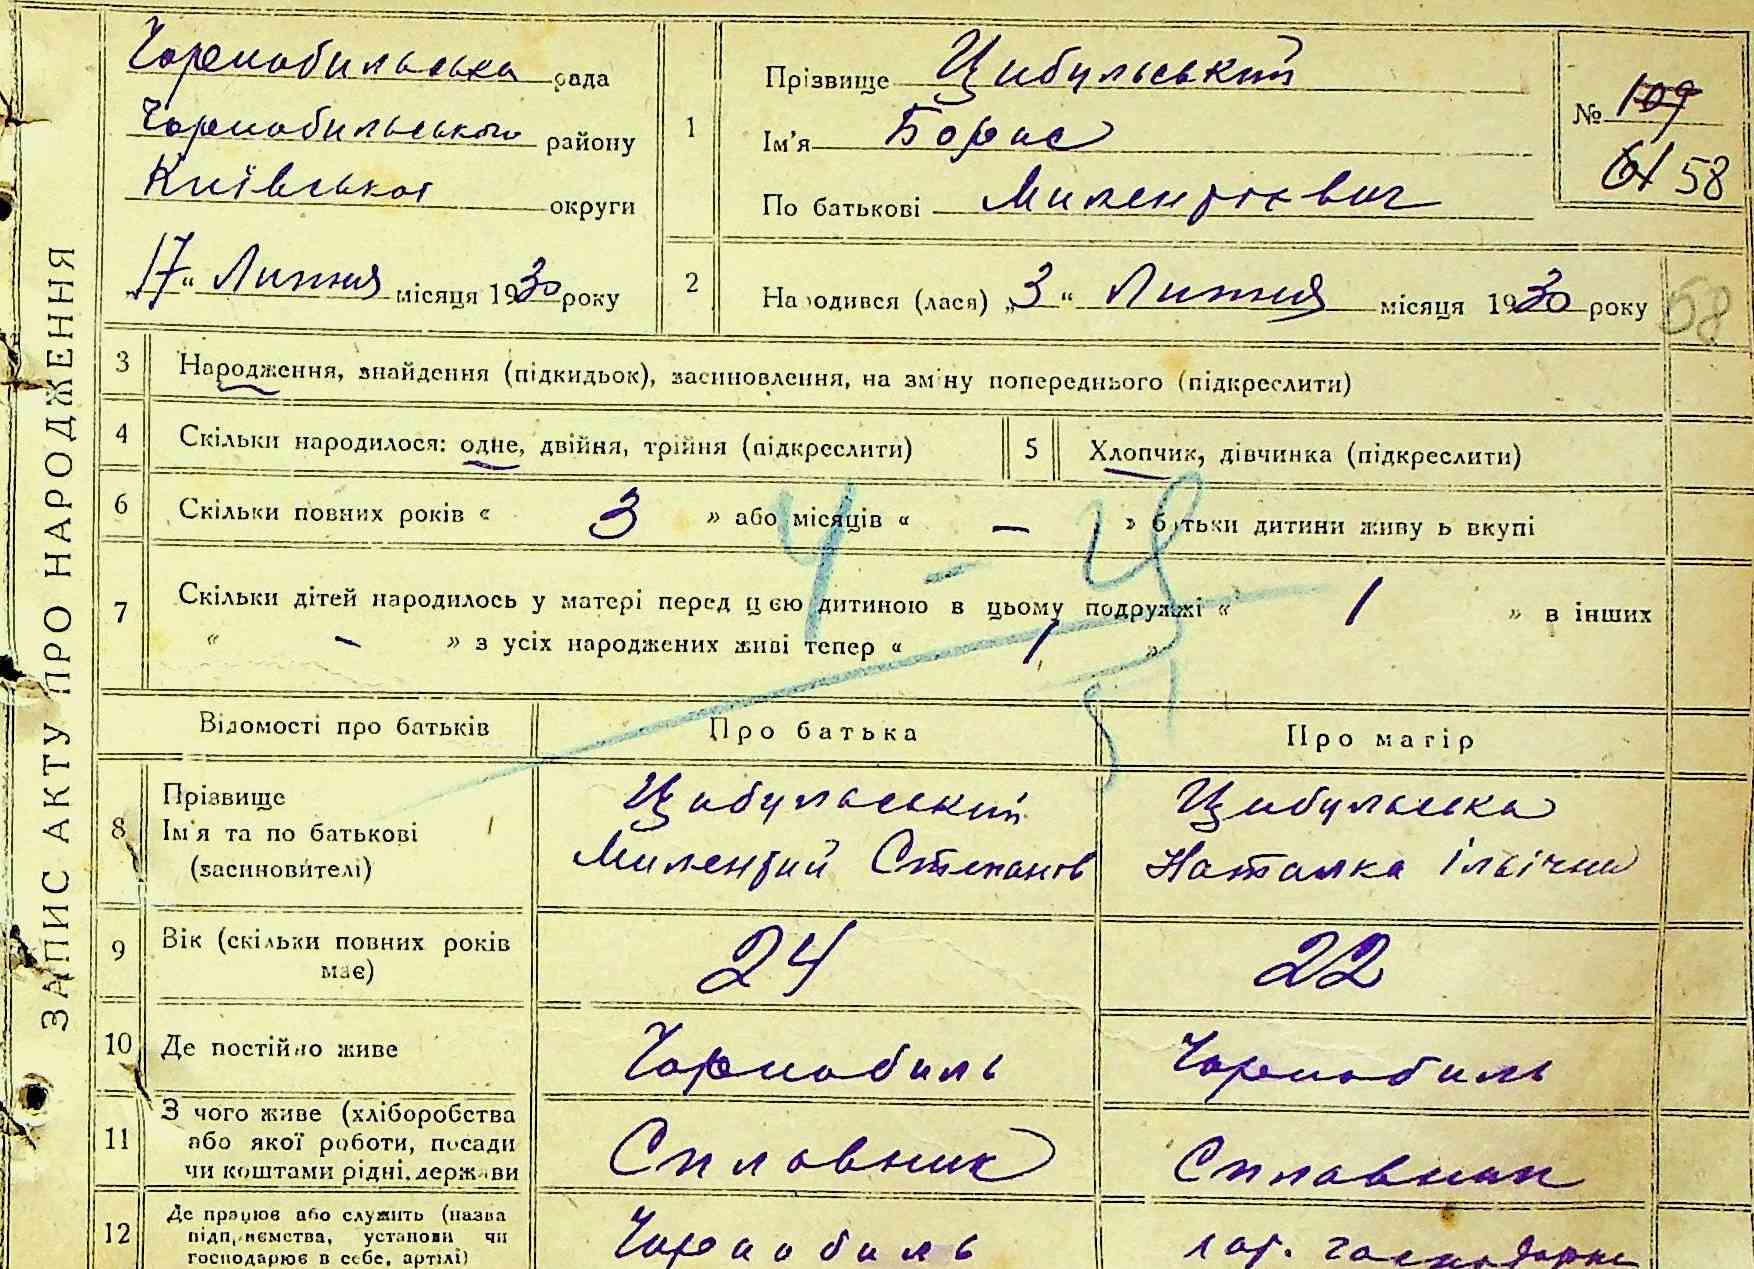 ЗАПИС АКТУ ПРО НАРОДЖЕННЯ
Чорнобильська рада
Чорнобильського району
Київської округи
„17“ Липня місяця 1930 року
1
Прізвище Цибульський
Ім'я Борис
По батькові Милентієвич
№ 109
61 58
2
Народився (лася) „3“ Липня місяця 1930 року
58
3 Народження, знайдення (підкидьок), засиновлення, на зміну попереднього (підкреслити)
4 Скільки народилося: одне, двійня, трійня (підкреслити)
5 Хлопчик, дівчинка (підкреслити)
6 Скільки повних років « 3 » або місяців « – » батьки дитини живуть вкупі
7 Скільки дітей народилось у матері перед цією дитиною в цьому подружжі « 1 » в інших
« – » з усіх народжених живі тепер « 1 »
Відомості про батьків
Про батька
Про матір
8 Прізвище
Ім'я та по батькові
(засиновителі)
Цибульський
Милентий Степанов
Цибульська
Наталка Ільїчна
9 Вік (скільки повних років
має)
24
22
10 Де постійно живе
Чорнобиль
Чорнобиль
11 З чого живе (хліборобства
або якої роботи, посади
чи коштами рідні, держави
Сплавник
Сплавник
12 Де працює або служить (назва
підприємства, установи чи
господарює в себе, артілі)
Чорнобиль